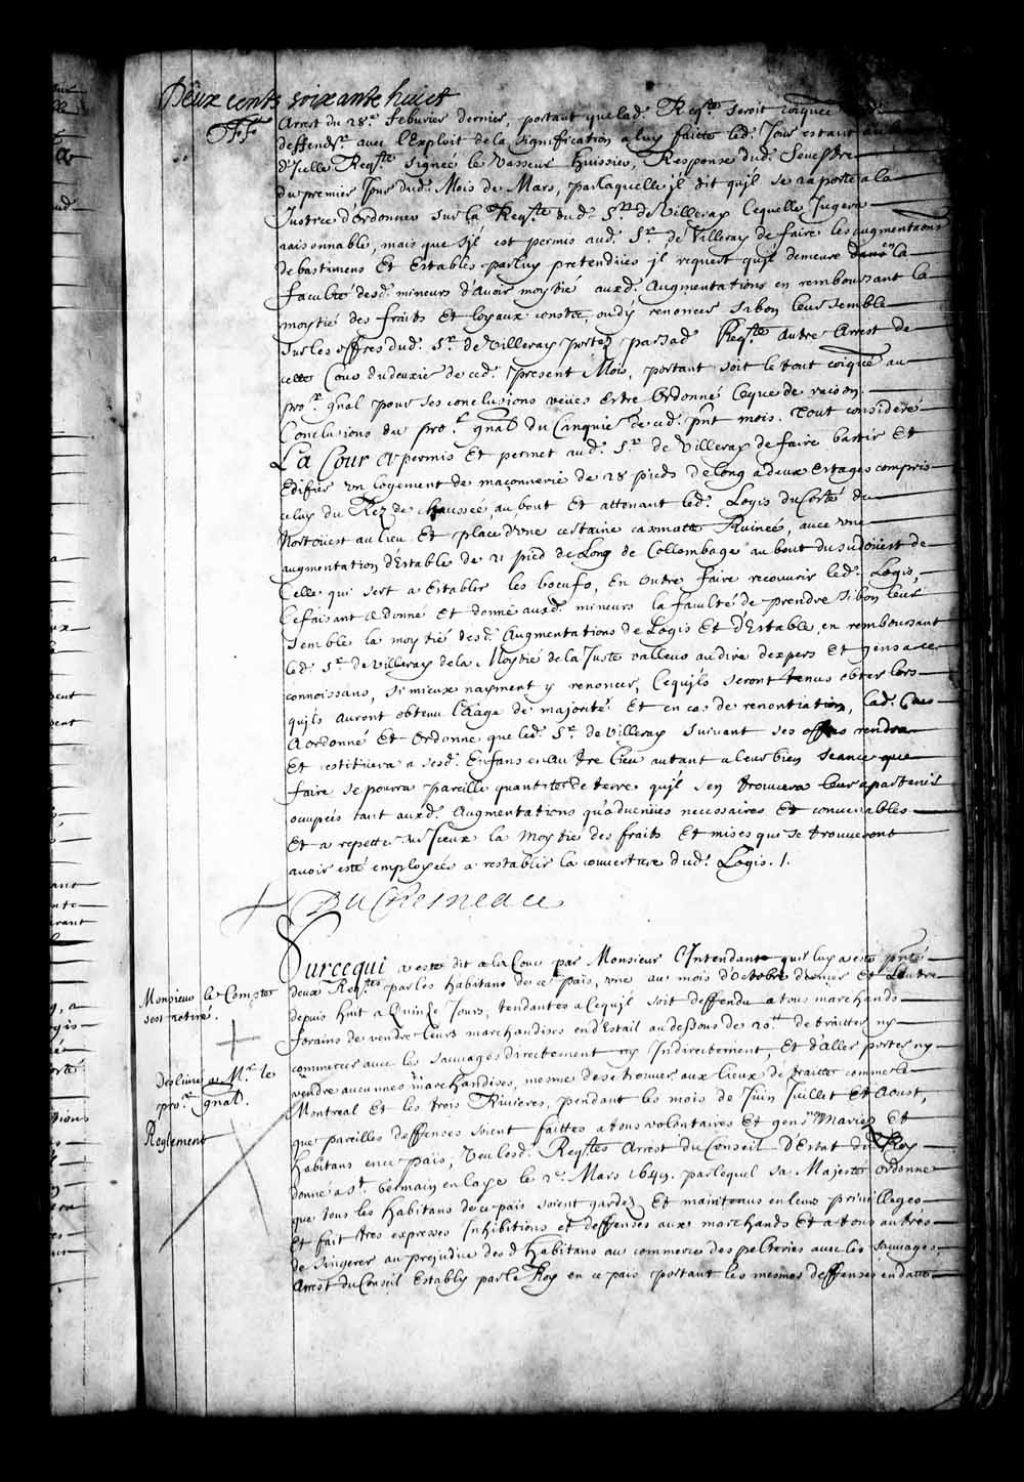 Deux cents soixante huict
Arrest du 28.e febvrier dernier, portant que lad. Req.te seroit coīquée
deffend.r avec l'Exploit de la signification a luy faitte led. Jour estant
d'Icelle Req.te signée le Vasseur huissier, Response dud. Sevestre
du premier Jour dud. Mois de Mars, par laquelle jl dit qu'jl se raporte a la
Justice d'ordonner sur la Req.te dud. S.r de Villeray lequelle Jugera
raisonnable, mais que s'jl est permis aud. S.r de Villeray de faire les augmentations
de bastimens Et Estables par luy pretendües jl requert qu'jl demeure dans la
faculté desd. mineurs d'avoir moytié auxd. Augmentations en remboursant la
moytié des fraits Et loyaux consts, ou d'y renoncer si bon leur semble
sur les offres dud. S.r de Villeray portez par sad. Req.te autre Arrest de
cette Cour du deuxie de ced. present Mois, portant soit le tout coīqué au
pro.r gnāl pour ses conclusions veües Estre Ordonné ce que de raison
Conclusions du pro.r gnāl du Cinquie de ced. pnt mois. Tout considéré
La Cour A permis Et permet aud. S.r de Villeray de faire bastir Et
Edifier un logement de maçonnerie de 28 pieds de long a deux Estages compris
celuy du Rez de chaussée, au bout Et attenant led. Logis du Costé du
Nortoüest au lieu Et place d'une certaine casmatte Ruinée, avec une
augmentation d'Estable de 21 pied de Long de Collombage au bout du sudoüest de
Celle qui sert a Establer les boeufs, En Outre faire recouvrir led. Logis,
Ce faisant A donné Et donne auxd. mineurs la faculté de prendre si bon leur
semble la moytié desd. Augmentations de Logis Et d'Estable, en remboursant
led. S.r de Villeray de la Moytié de la Juste valleur au dire d'expers Et gens a ce
connoissans, si mieux n'ayment y renoncer, Ce qu'jls seront tenus opter lors
qu'jls auront obtenu l'Aage de majorité Et en cas de renontiation, lad. Cour
A ordonné Et Ordonne que led. S.r de Villeray suivant ses offres rendra
Et restituera a sesd. Enfans en autre lieu autant a leur bien seance que
faire se pourra pareille quantité de terre qu'jl s'en trouvera leur apartenir
ocupées tant auxd. Augmentations qu'advenües necessaires Et convenables
Et a repetter sur Jceux la Moytié des fraits Et mises que se trouveront
avoir esté employées a restablir la couverture dud. Logis. /.
DuChesneau
Monsieur le Compte
sest retiré.
Deslivré a M.r le
pro.r gnāl.
Reglement
Sur ce qui a esté dit a la Cour par Monsieur l'Intendant qu'jl luy a esté pnté
deux Req.tes par les habitans de ce païs, une au mois d'Octobre dernier Et l'autre
depuis huit a Quinze Jours, tendantes a ce qu'jl soit deffendu a tous marchands
forains de vendre leurs marchandises en d'Estail au dessous de 20.tt de traitter ny
commercer avec les sauvages directement ny Indirectement, Et d'aller porter ny
vendre aucunnes marchandises, mesme de se trouver aux lieux de traitte comme le
Montreal Et les trois Rivieres, pendant les mois de Juin Juillet Et Aoust,
que pareilles deffenses soient faittes a tous volontaires Et gens non Mariez Et
habitans en ce païs, Veu lesd. Req.tes Arrest du Conseil D'Estat du Roy
donné a S.t Germain en Laye le 2.e Mars 1649. par lequel sa Majesté ordonne
que tous les habitans de ce païs soient gardez Et maintenus en leurs privillages
Et fait tres expresses Inhibitions et deffenses aux marchands Et a tous autres
de s'ingerer au prejudice desd habitans au commerce des pelteries avec les sauvages
Arrest du Conseil Estably par le Roy en ce païs portant les mesmes deffenses en datte